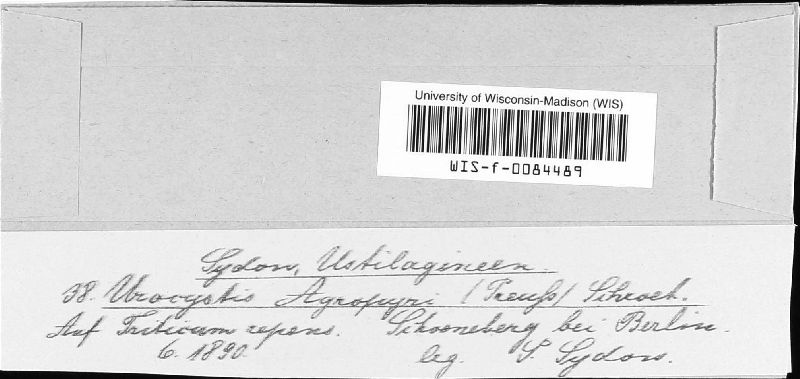 University of Wisconsin-Madison (WIS)
WIS-f-0084489
Sydow, Ustilagineen.
38. Urocystis Agropyri (Preuß) Schroet.
Auf Triticum repens. Schöneberg bei Berlin.
6. 1890. leg. P. Sydow.